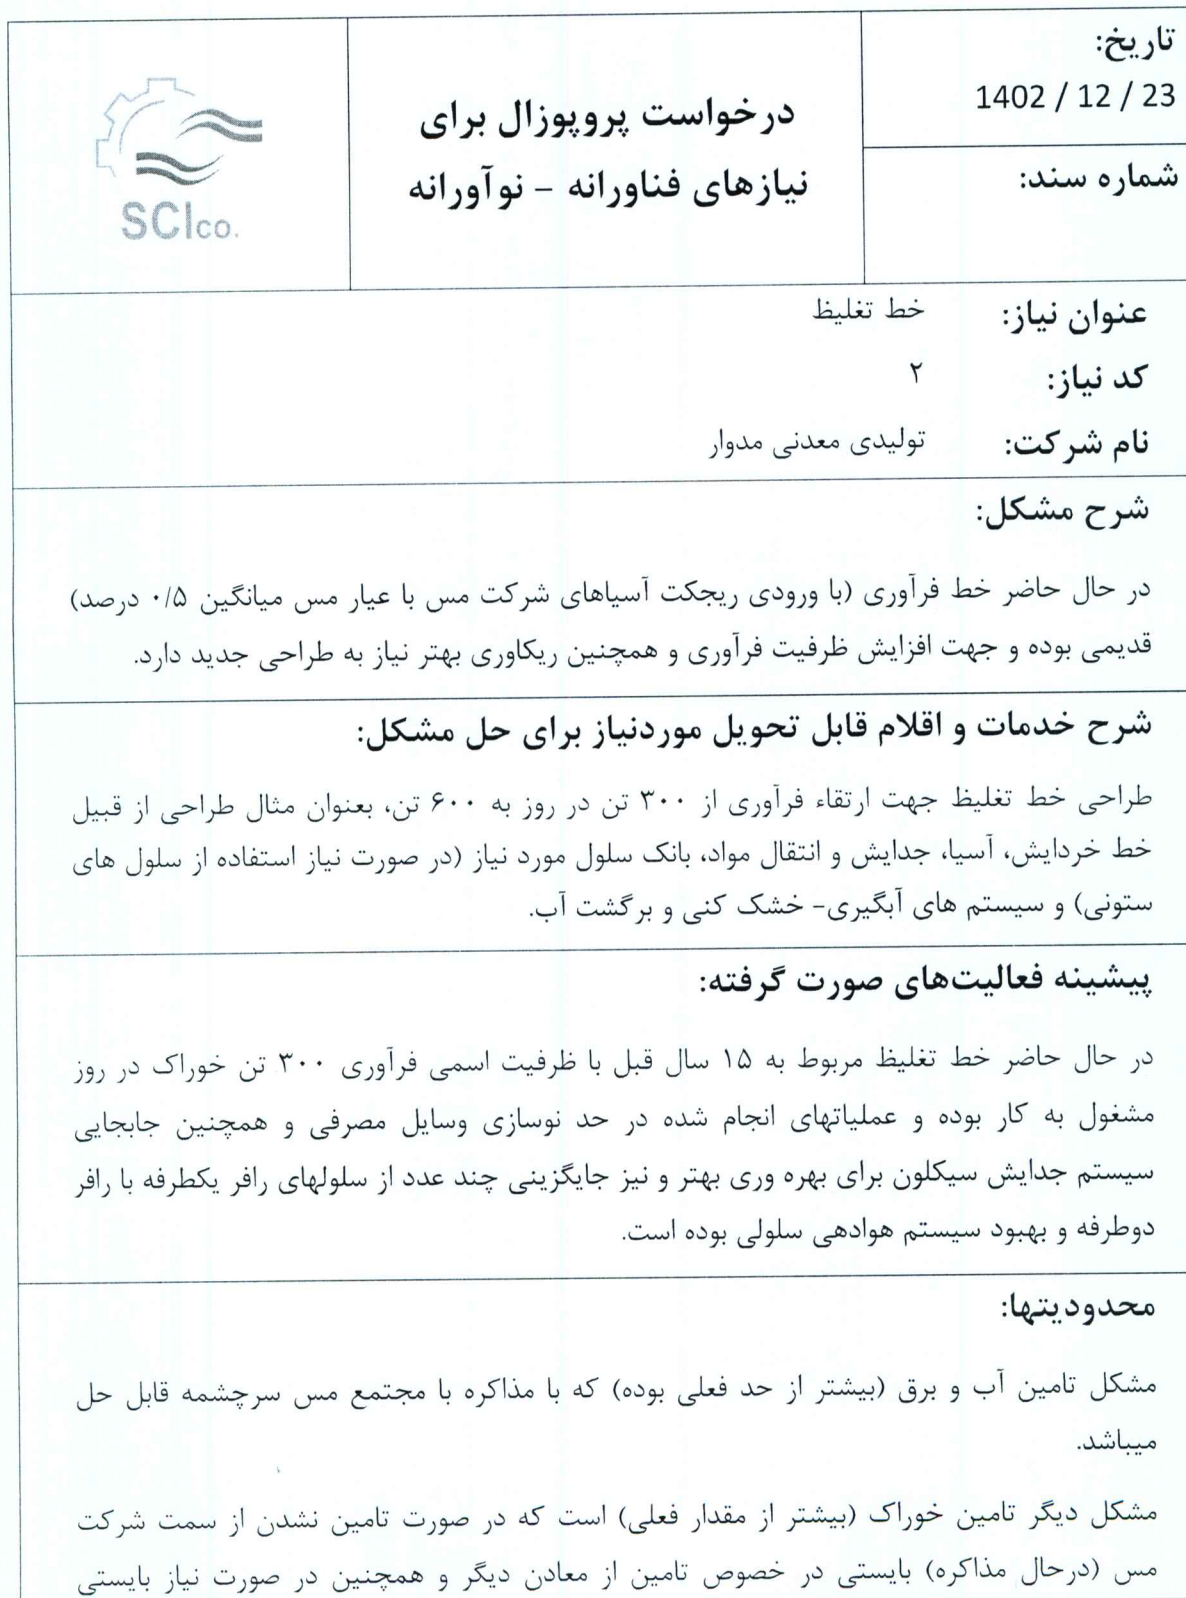 تاریخ:
1402 / 12 / 23
شماره سند:
درخواست پروپوزال برای
نیازهای فناورانه - نوآورانه
SCIco.
عنوان نیاز: خط تغلیظ
کد نیاز: ۲
نام شرکت: تولیدی معدنی مدوار
شرح مشکل:
در حال حاضر خط فرآوری (با ورودی ریجکت آسیاهای شرکت مس با عیار مس میانگین ۰/۵ درصد)
قدیمی بوده و جهت افزایش ظرفیت فرآوری و همچنین ریکاوری بهتر نیاز به طراحی جدید دارد.
شرح خدمات و اقلام قابل تحویل موردنیاز برای حل مشکل:
طراحی خط تغلیظ جهت ارتقاء فرآوری از ۳۰۰ تن در روز به ۶۰۰ تن، بعنوان مثال طراحی از قبیل
خط خردایش، آسیا، جدایش و انتقال مواد، بانک سلول مورد نیاز (در صورت نیاز استفاده از سلول های
ستونی) و سیستم های آبگیری- خشک کنی و برگشت آب.
پیشینه فعالیت‌های صورت گرفته:
در حال حاضر خط تغلیظ مربوط به ۱۵ سال قبل با ظرفیت اسمی فرآوری ۳۰۰ تن خوراک در روز
مشغول به کار بوده و عملیاتهای انجام شده در حد نوسازی وسایل مصرفی و همچنین جابجایی
سیستم جدایش سیکلون برای بهره وری بهتر و نیز جایگزینی چند عدد از سلولهای رافر یکطرفه با رافر
دوطرفه و بهبود سیستم هوادهی سلولی بوده است.
محدودیتها:
مشکل تامین آب و برق (بیشتر از حد فعلی بوده) که با مذاکره با مجتمع مس سرچشمه قابل حل
میباشد.
مشکل دیگر تامین خوراک (بیشتر از مقدار فعلی) است که در صورت تامین نشدن از سمت شرکت
مس (درحال مذاکره) بایستی در خصوص تامین از معادن دیگر و همچنین در صورت نیاز بایستی